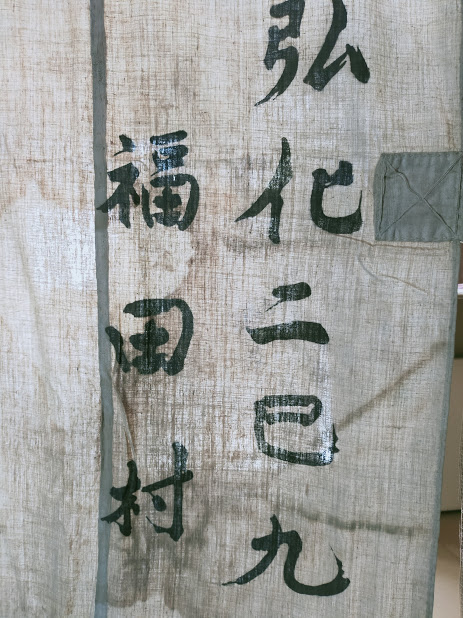 弘化二巳九
福田村